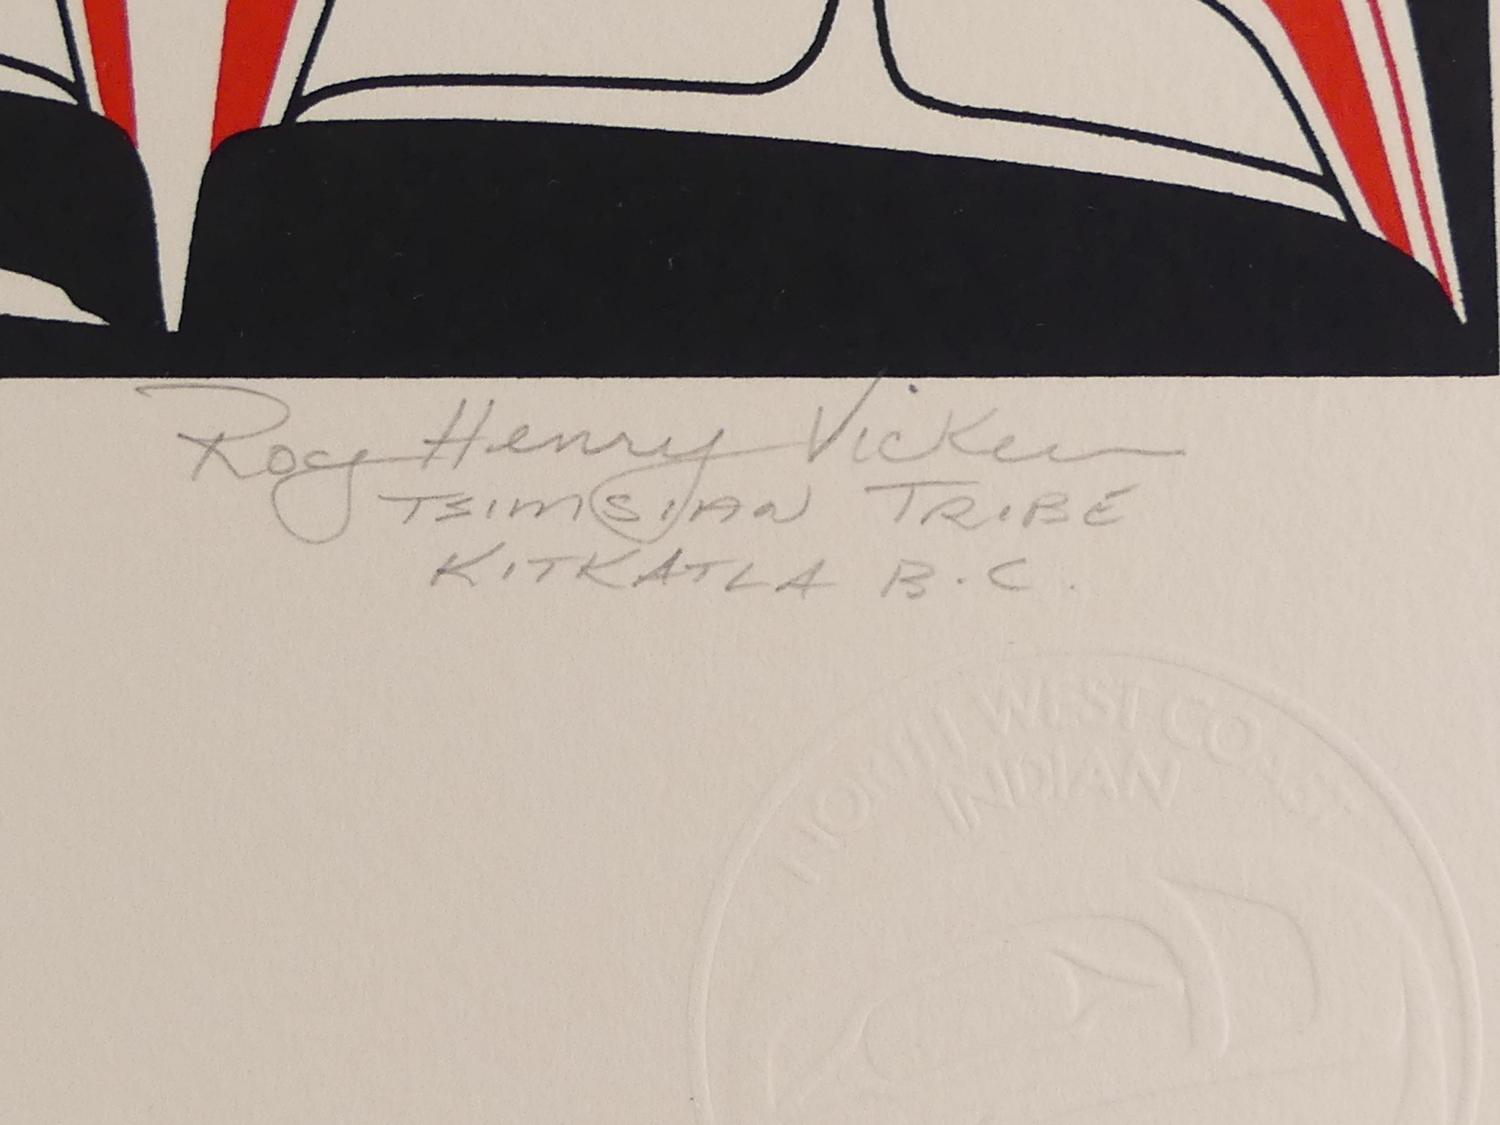 Roy Henry Vickers
TSIMSIAN TRIBE
KITKATLA B.C.
NORTH WEST COAST
INDIAN